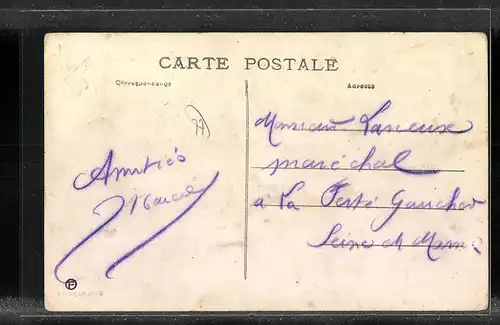 CARTE POSTALE
Correspondance
Adresse
77
Amitiés
Marcel
Monsieur Lasseux
maréchal
à La Ferté Gaucher
Seine et Marne